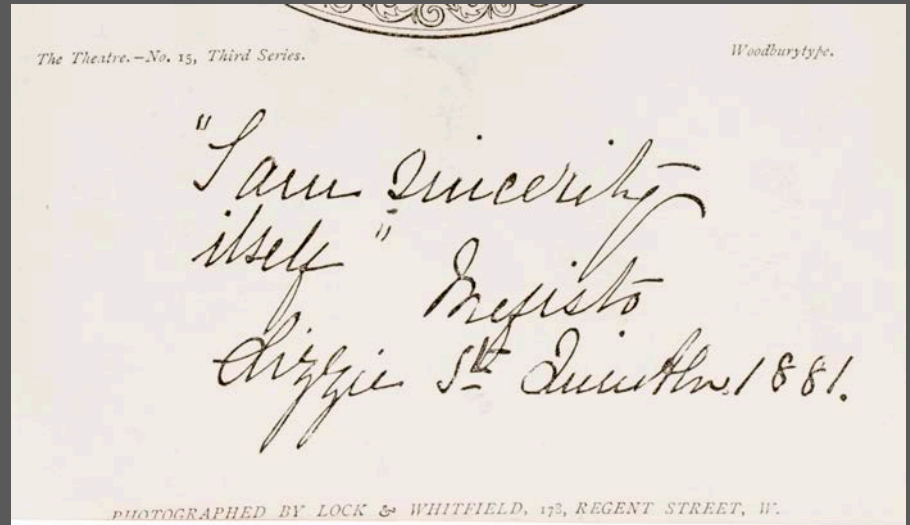 The Theatre.—No. 15, Third Series. Woodburytype.
"I am sincerity
itself"
Mefisto
Lizzie St. Quinten 1881.
PHOTOGRAPHED BY LOCK & WHITFIELD, 178, REGENT STREET, W.